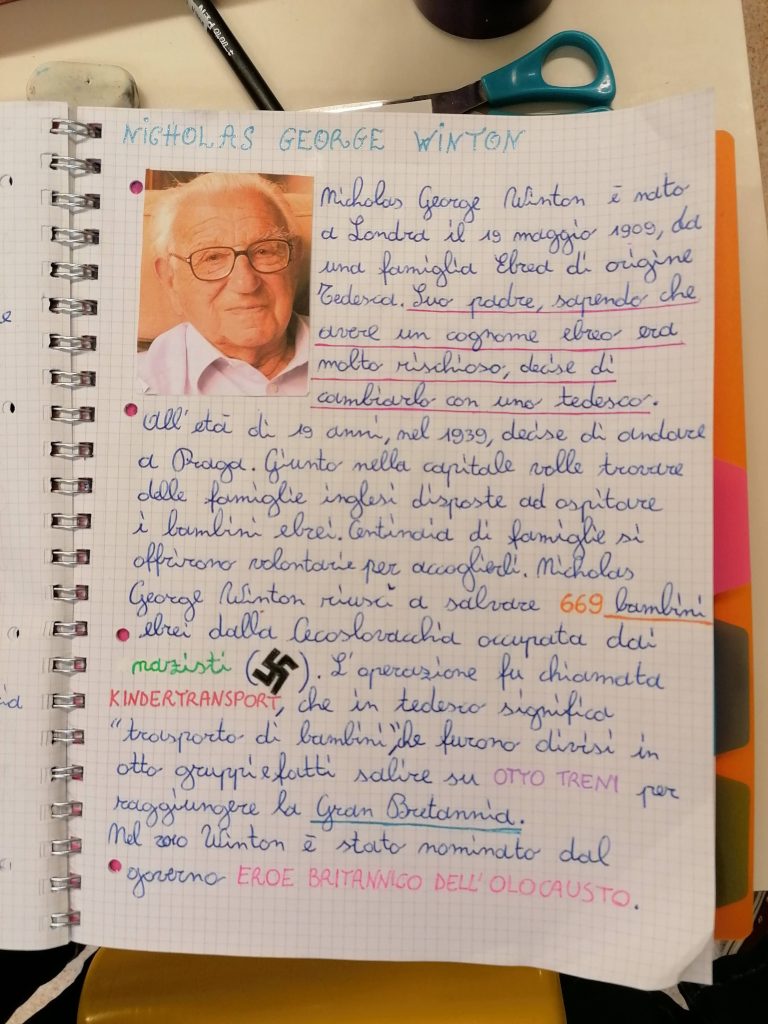 NICHOLAS GEORGE WINTON
Nicholas George Winton è nato
a Londra il 19 maggio 1909, da
una famiglia Ebrea di origine
Tedesca. Suo padre, sapendo che
avere un cognome ebreo era
molto rischioso, decise di
cambiarlo con uno tedesco.
All'età di 19 anni, nel 1939, decise di andare
a Praga. Giunto nella capitale volle trovare
delle famiglie inglesi disposte ad ospitare
i bambini ebrei. Centinaia di famiglie si
offrirono volontarie per accoglierli. Nicholas
George Winton riuscì a salvare 669 bambini
ebrei dalla Cecoslovacchia occupata dai
nazisti (卐). L'operazione fu chiamata
KINDERTRANSPORT, che in tedesco significa
"trasporto di bambini", che furono divisi in
otto gruppi e fatti salire su OTTO TRENI per
raggiungere la Gran Britannia.
Nel 2010 Winton è stato nominato dal
governo EROE BRITANNICO DELL'OLOCAUSTO.